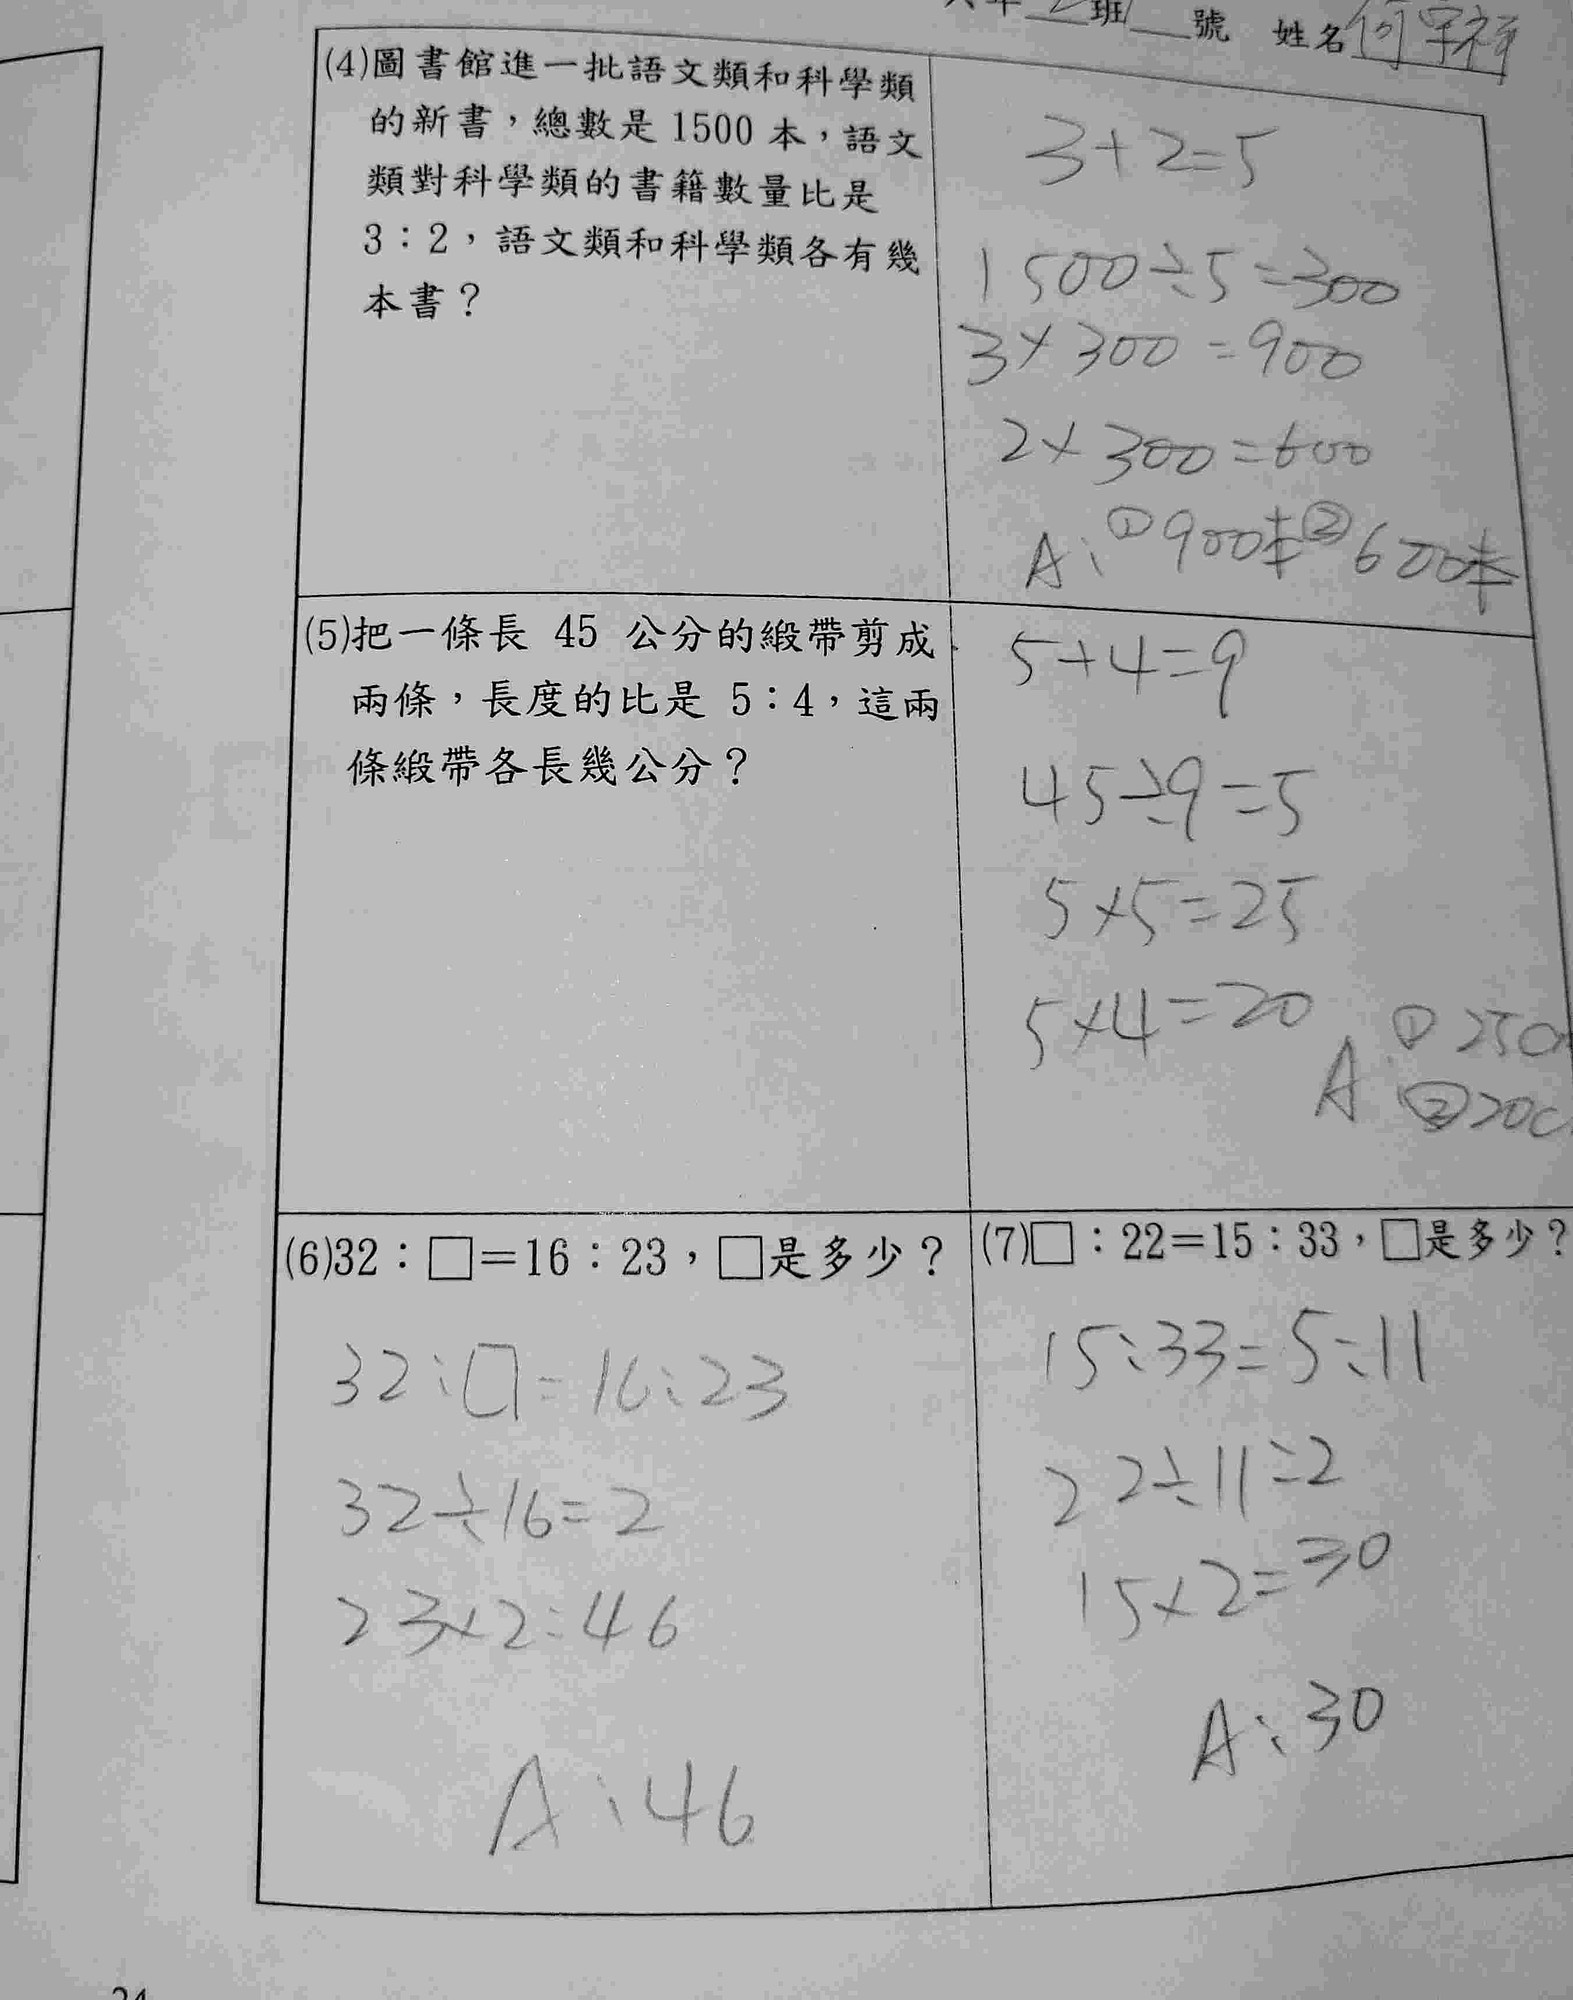 班 號 姓名
(4)圖書館進一批語文類和科學類
的新書，總數是 1500 本，語文
類對科學類的書籍數量比是
3：2，語文類和科學類各有幾
本書？
3+2=5
1500÷5=300
3×300=900
2×300=600
A：①900本②600本
(5)把一條長 45 公分的緞帶剪成
兩條，長度的比是 5：4，這兩
條緞帶各長幾公分？
5+4=9
45÷9=5
5×5=25
5×4=20
A：①25c
②20c
(6)32：□=16：23，□是多少？
32：□=16：23
32÷16=2
23×2=46
A：46
(7)□：22=15：33，□是多少？
15：33=5：11
22÷11=2
15×2=30
A：30